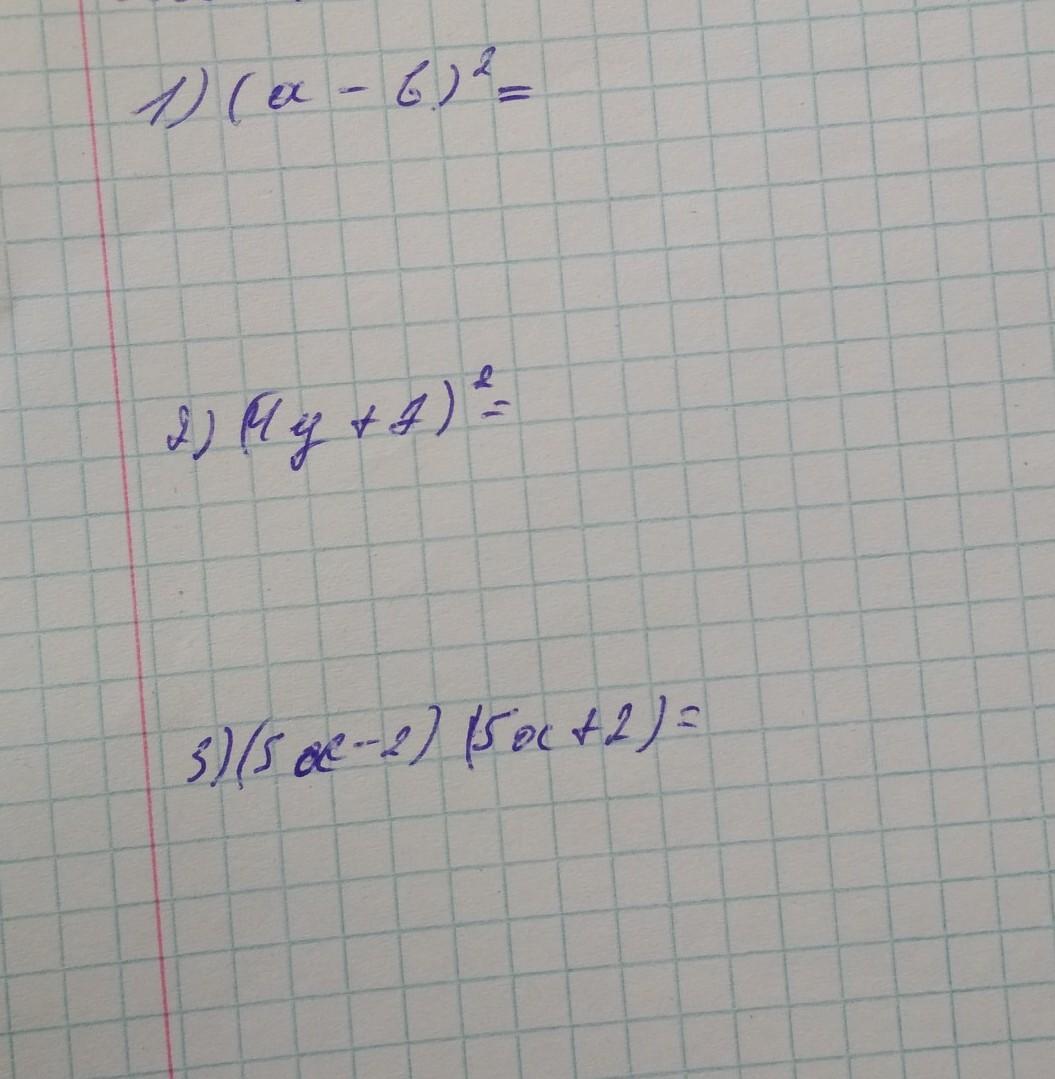 1) (a - 6)² =
2) (4y + 7)² =
3) (5x - 2) (5x + 2) =